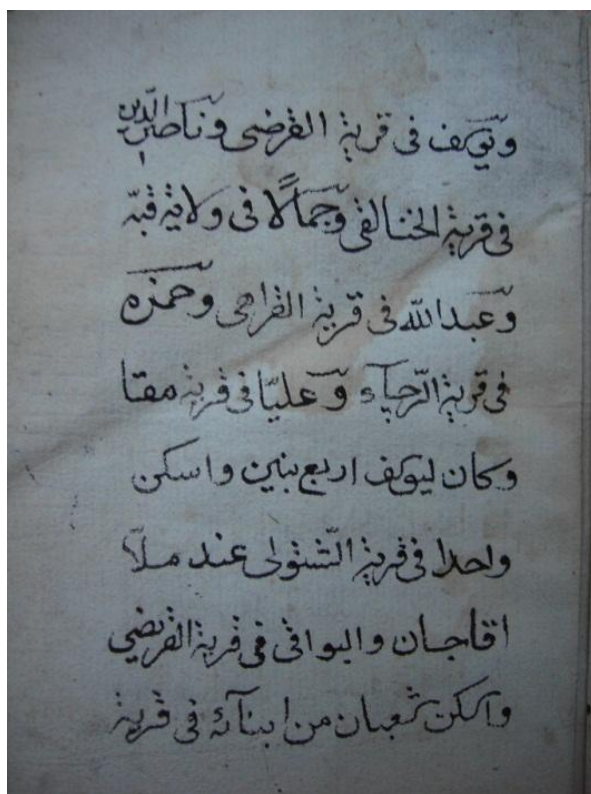 ويوسف فى قرية القرضى وناصر الدين
فى قرية الخنالقى وجمالا فى ولاية قبّه
وعبدالله فى قرية القراحى وحمزه
فى قرية الرّحپاء وعليّا فى قرية مقتا
وكان ليوسف اربع بنين واسكن
واحدا فى قرية التّشتولى عند ملاّ
اقاجان والبواقى فى قرية القريضي
واسكن شعبان من ابنآئه فى قرية